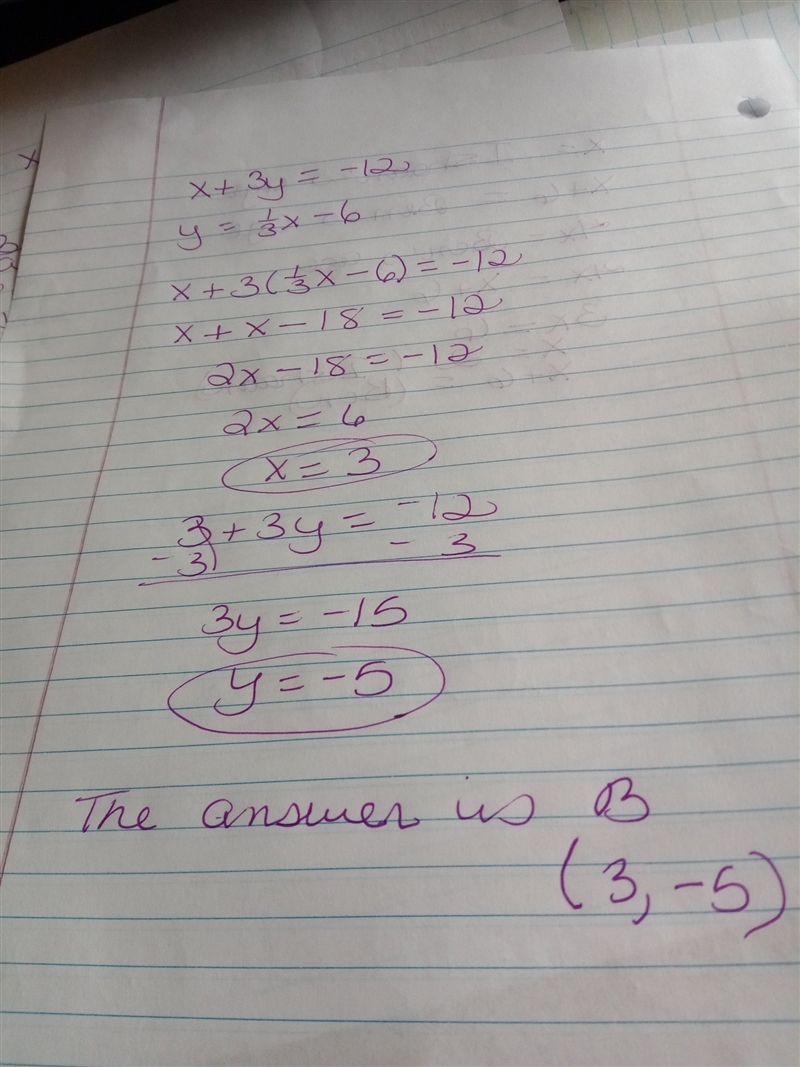 x + 3y = -12
y = 1/3x - 6
x + 3(1/3x - 6) = -12
x + x - 18 = -12
2x - 18 = -12
2x = 6
x = 3
3 + 3y = -12
-3 - 3
3y = -15
y = -5
The answer is B
(3, -5)